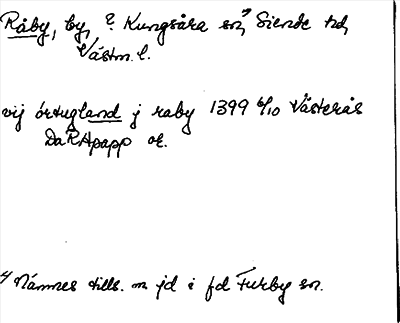 Råby, by, ? Kungsåra sn, 1) Siende hd,
Västm. l.
vij örtugland j raby 1399 6/10 Västerås
DaRApapp or.
1) Nämnes tills. m jd i fd Furby sn.